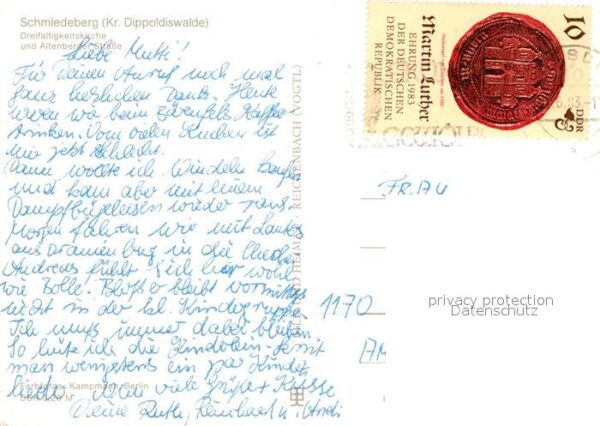 Schmiedeberg (Kr. Dippoldiswalde)
Dreifaltigkeitskirche
und Altenberger Straße
Liebe Mutti!
Für Deinen Anruf noch mal
ganz herzlichen Dank. Heute
waren wir beim Bärenfels Kaffee
trinken. Vom vielen Kuchen ist
mir jetzt schlecht.
Dann wollte ich Windeln kaufen
und kam aber mit einem
Dampfbügeleisen wieder raus.
Morgen fahren wir mit
aus Oranienburg in die
Andreas fühlt sich hier wohl
wie Bolle. Bloß er bleibt vormittags
nicht in der kl. Kindergruppe.
Ich muß immer dabei bleiben.
So hüte ich die Kindlein, damit
man wenigstens ein paar Kinder
viele Grüße + Küsse
Deine Ruth, Reinhard u. Andi
Farbfotos: Kampmann, Berlin
BILD UND HEIMAT REICHENBACH (VOGTL)
10
DDR
Martin Luther
EHRUNG 1983
DER DEUTSCHEN
DEMOKRATISCHEN
REPUBLIK
FRAU
1170
privacy protection
Datenschutz